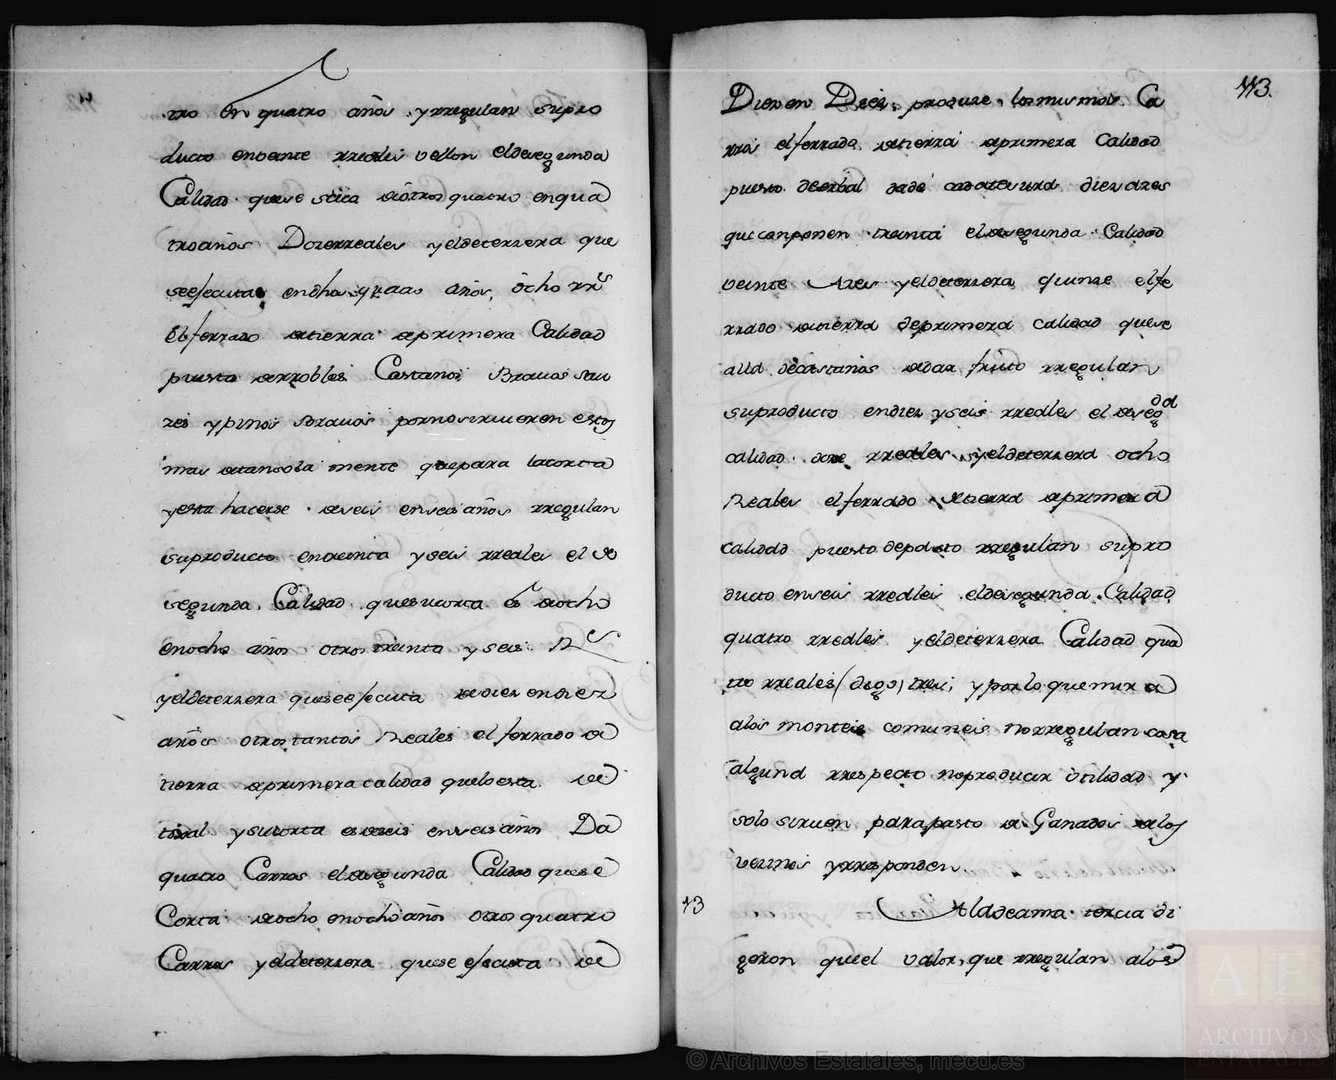 tro En quatro años yrregulan supro
ducto enveinte rreales vellon eldesegunda
Calidad quese seca deotros quatro enqua
troaños Dozerreales yeldeterzera que
seejecuta endhos quatro años, ôcho rrs
El ferrado detierra deprimera Calidad
puesta derrobles Castaños Bravos Sau
zes ypinos bravos pornosirvieren estos
mas detansola mente quepara lacorta
yesta hacerse deseis enseis años rregulan
suproducto entreinta yseis rreales el de
segunda Calidad quesucorta es deocho
enocho años otros treinta y seis Rs
yeldeterzera quese ejecuta dediez endiez
años otrostantos Reales el ferrado de
tierra deprimera calidad queloesta de
toxal ysucorta esdeseis enseis años Da
quatro Carros eldesegunda Calidad quese
Corta deocho enocho años otros quatro
Carros yeldeterzera quese ejecuta de
113.
Diez en Diez, produze los mismos Ca
rros el ferrado detierra deprimera Calidad
puesto diez ares
que conponen treinta eldesegunda Calidad
veinte Ares yeldeterzera quinze elfe
rrado detierra deprimera calidad quese
alla decastaños dedar fruto rregulan
suproducto endiez yseis rreales el desegda
calidad doze rreales yeldeterzera ocho
Reales elferrado detierra deprimera
calidad puesto depasto rregulan supro
ducto enseis rreales eldesegunda Calidad
quatro rreales yeldeterzera Calidad qua
tro rreales (digo) tres, y porlo quemira
alos montes comunes norregulan cosa
alguna rrespecto noproducir utilidad y
solo sirven parapasto de Ganados delos
vezinos yrresponden
13 Aladezima tercia di
geron queel valor, que rregulan alos
© Archivos Estatales, mecd.es
AE
ARCHIVOS
ESTATALES